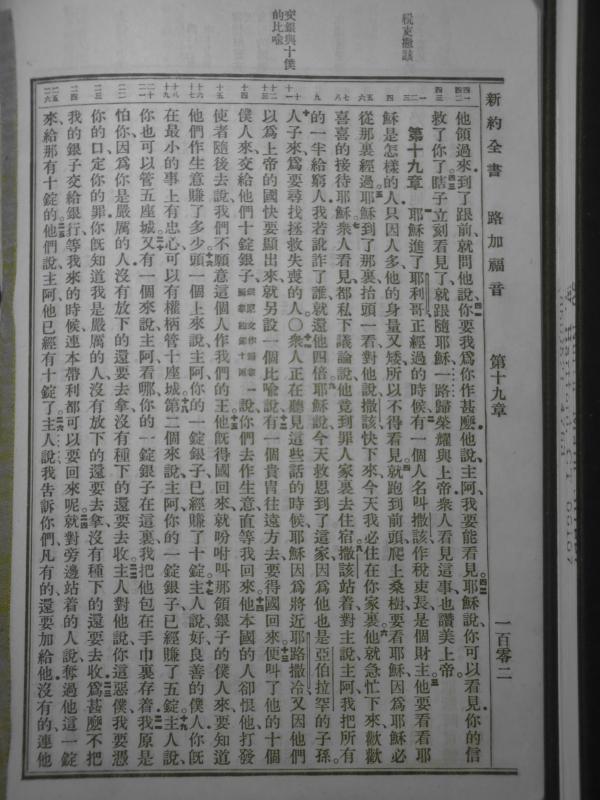 新約全書 路加福音 第十九章 一百零二
稅吏撒該
交銀與十僕
的比喻
他領過來到了跟前就問他說你要我爲你作甚麼他說主阿我要能看見耶穌說你可以看見你的信
救了你了瞎子立刻看見了就跟隨耶穌一路歸榮耀與上帝衆人看見這事也讚美上帝
第十九章 耶穌進了耶利哥正經過的時候有一個人名叫撒該作稅吏長是個財主他要看看耶
穌是怎樣的人只因人多他的身量又矮所以不得看見就跑到前頭爬上桑樹要看耶穌因爲耶穌必
從那裏經過耶穌到了那裏抬頭一看對他說撒該快下來今天我必住在你家裏他就急忙下來歡歡
喜喜的接待耶穌衆人看見都私下議論說他竟到罪人家裏去住宿撒該站着對主說主阿我把所有
的一半給窮人我若訛詐了誰就還他四倍耶穌說今天救恩到了這家因爲他也是亞伯拉罕的子孫
人子來爲要尋找拯救失喪的人〇衆人正在聽見這些話的時候耶穌因爲將近耶路撒冷又因他們
以爲上帝的國快要顯出來就另設一個比喻說有一個貴冑往遠方去要得國回來便叫了他的十個
僕人來交給他們十錠銀子說你們去作生意直等我回來他本國的人卻恨他打發
使者隨後去說我們不願意這個人作我們的王他既得國回來就吩咐叫那領銀子的僕人來要知道
他們作生意賺了多少頭一個上來說主阿你的一錠銀子已經賺了十錠主人說好良善的僕人你既
在最小的事上有忠心可以有權柄管十座城第二個來說主阿你的一錠銀子已經賺了五錠主人說
你也可以管五座城又有一個來說主阿看哪你的一錠銀子在這裏我把他包在手巾裏存着我原是
怕你因爲你是嚴厲的人沒有放下的還要去拿沒有種下的還要去收主人對他說你這惡僕我要憑
你的口定你的罪你既知道我是嚴厲的人沒有放下的還要去拿沒有種下的還要去收爲甚麼不把
我的銀子交給銀行等我來的時候連本帶利都可以要回來呢就對旁邊站着的人說奪過他這一錠
來給那有十錠的他們說主阿他已經有十錠了主人說我告訴你們凡有的還要加給他沒有的連他